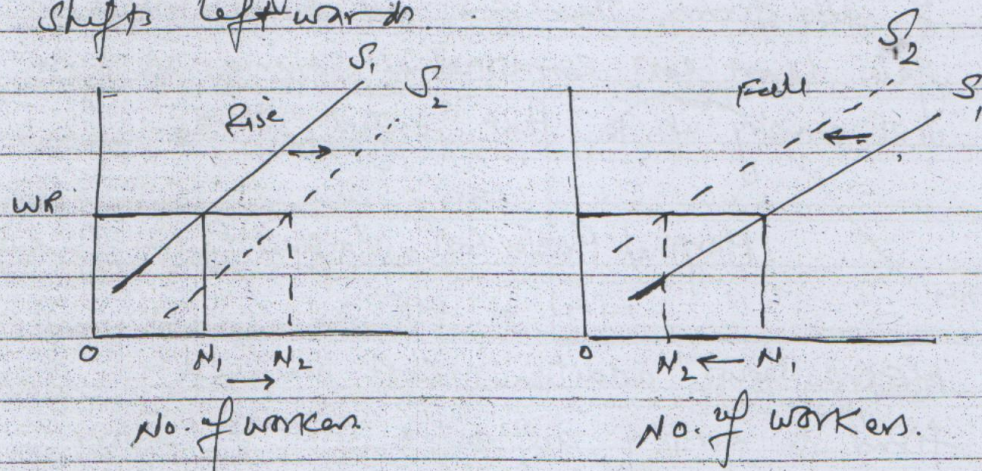 Shifts leftwards.
S₁ S₂
Rise
WR
O N₁ → N₂
No. of workers.
S₂
Fall S₁
O N₂ ← N₁
No. of workers.